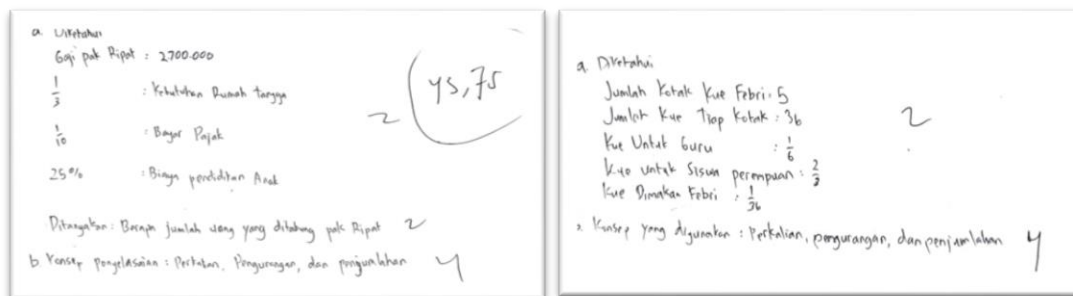 a. Diketahui
Gaji pak Ripat : 2.700.000
1/3 : Kebutuhan Rumah tangga
1/10 : Bayar Pajak
25% : Biaya pendidikan Anak
2
45,75
Ditanyakan : Berapa jumlah uang yang ditabung pak Ripat 2
b. Konsep penyelesaian : Perkalian, Pengurangan, dan penjumlahan 4
a. Diketahui
Jumlah Kotak Kue Febri : 5
Jumlah Kue Tiap Kotak : 36
Kue Untuk Guru : 1/6
Kue untuk Siswa perempuan : 2/3
Kue Dimakan Febri : 1/36
2
Konsep yang digunakan : Perkalian, pengurangan, dan penjumlahan 4